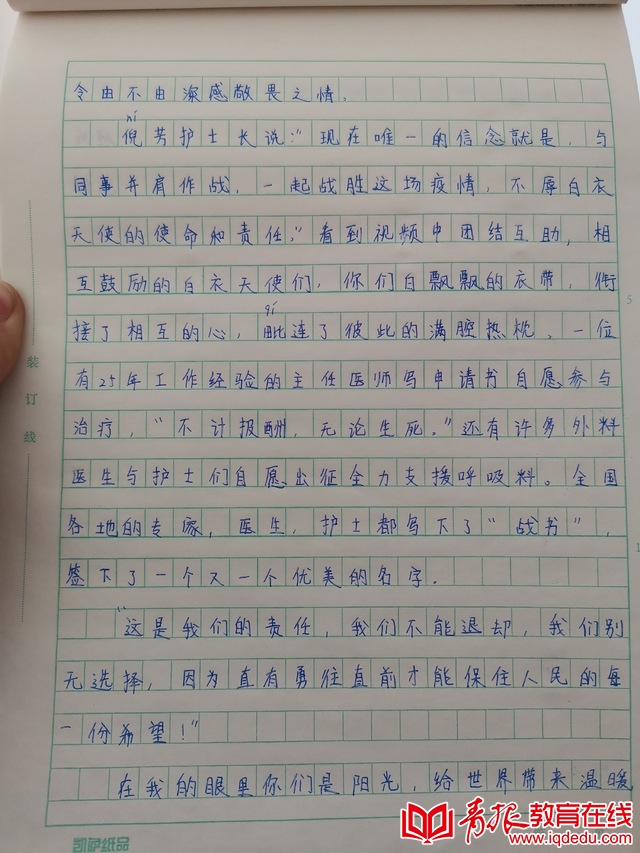 令由不由深感敬畏之情.
ní
倪芳护士长说:"现在唯一的信念就是,与
同事并肩作战,一起战胜这场疫情,不辱白衣
天使的使命和责任."看到视频中团结互助,相
互鼓励的白衣天使们,你们白飘飘的衣带,衔
接了相互的心,毗连了彼此的满腔热枕.一位
有25年工作经验的主任医师写申请书自愿参与
治疗,"不计报酬,无论生死."还有许多外科
医生与护士们自愿出征全力支援呼吸科。全国
各地的专家,医生,护士都写下了"战书",
签下了一个又一个优美的名字.
"这是我们的责任,我们不能退却,我们别
无选择,因为直有勇往直前才能保住人民的每
一份希望!"
在我的眼里你们是阳光,给世界带来温暖
装订线
5
1
凯萨纸品
青报教育在线
www.iqdedu.com